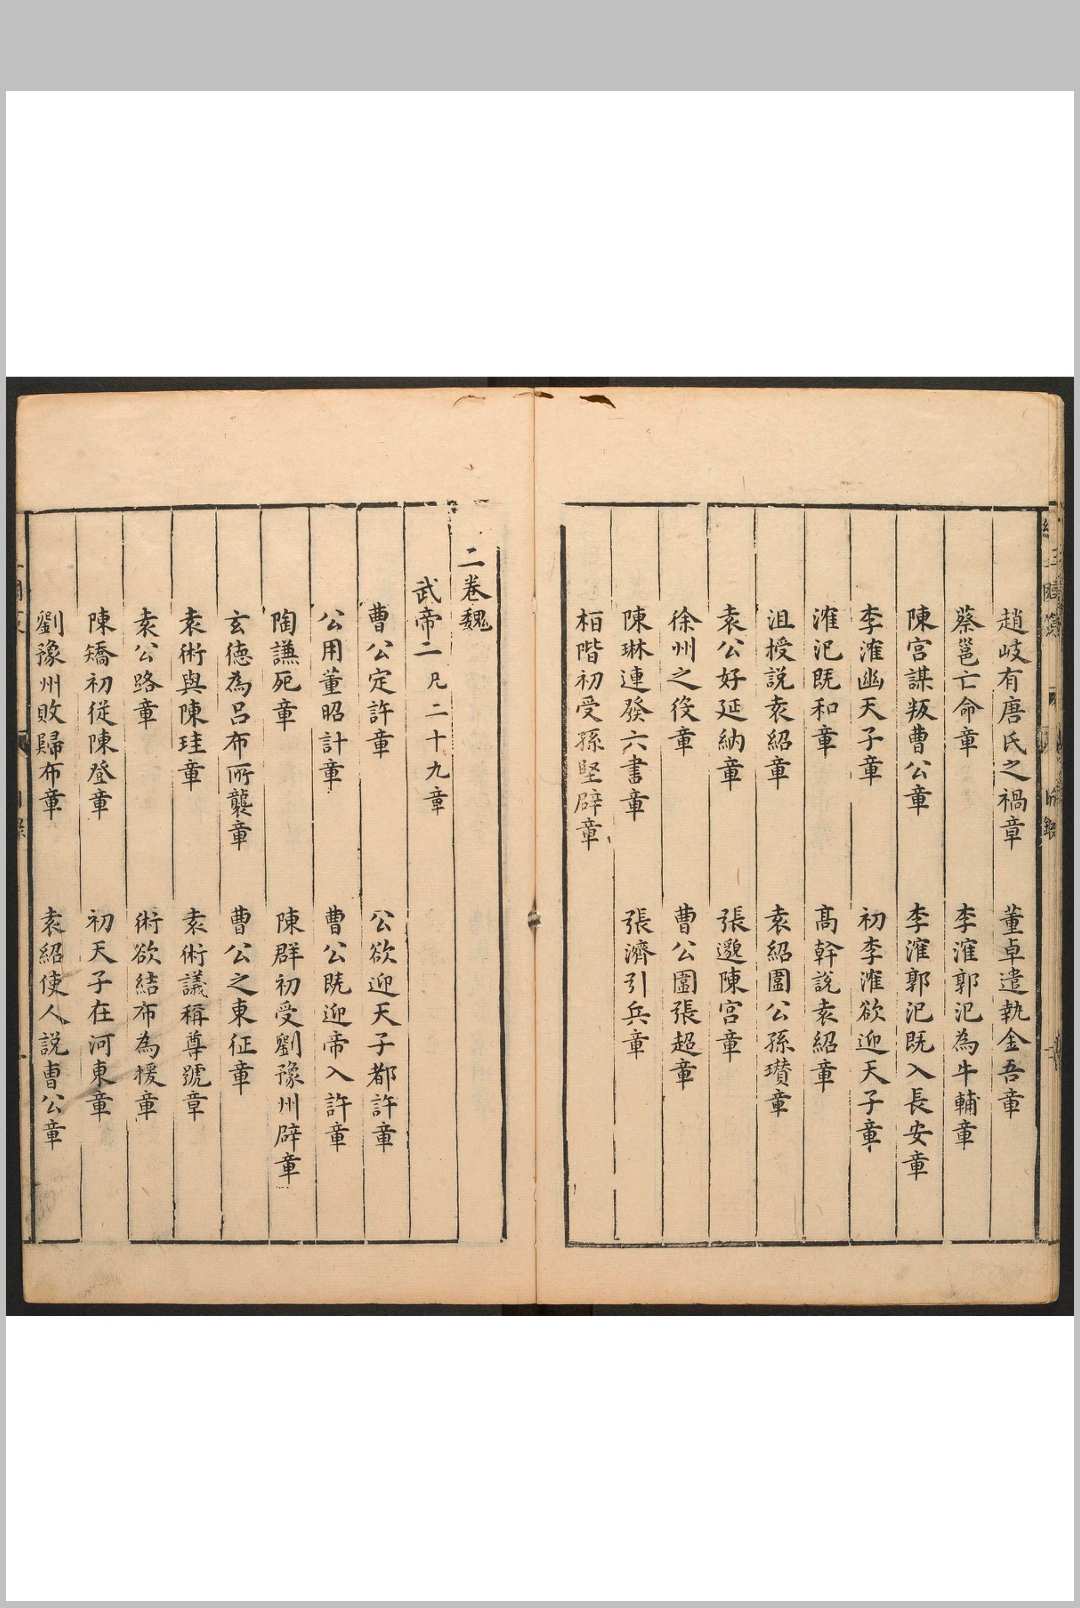 趙岐有唐氏之禍章 董卓遣執金吾章
蔡邕亡命章 李漼郭汜為牛輔章
陳宮謀叛曹公章 李漼郭汜既入長安章
李漼幽天子章 初李漼欲迎天子章
漼汜既和章 高幹說袁紹章
沮授說袁紹章 袁紹圍公孫瓚章
袁公好延納章 張邈陳宮章
徐州之役章 曹公圍張超章
陳琳連發六書章 張濟引兵章
桓階初受孫堅辟章
二卷魏
武帝二凡二十九章
曹公定許章 公欲迎天子都許章
公用董昭計章 曹公既迎帝入許章
陶謙死章 陳群初受劉豫州辟章
玄德為呂布所襲章 曹公之東征章
袁術與陳珪章 袁術議稱尊號章
袁公路章 術欲結布為援章
陳矯初從陳登章 初天子在河東章
劉豫州敗歸布章 袁紹使人說曹公章